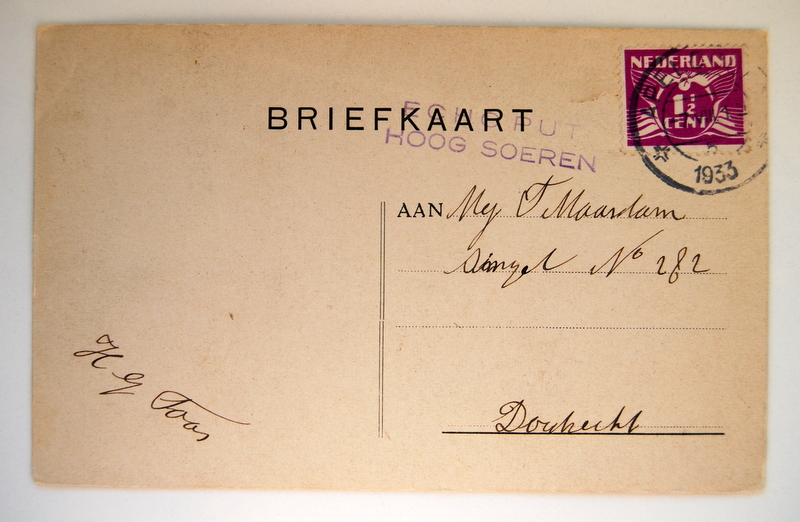 NEDERLAND
1½
CENT
1933
BRIEFKAART
ECHOPUT
HOOG SOEREN
AAN Mej T Maasdam
Singel No 282
Dordrecht
H G Foos